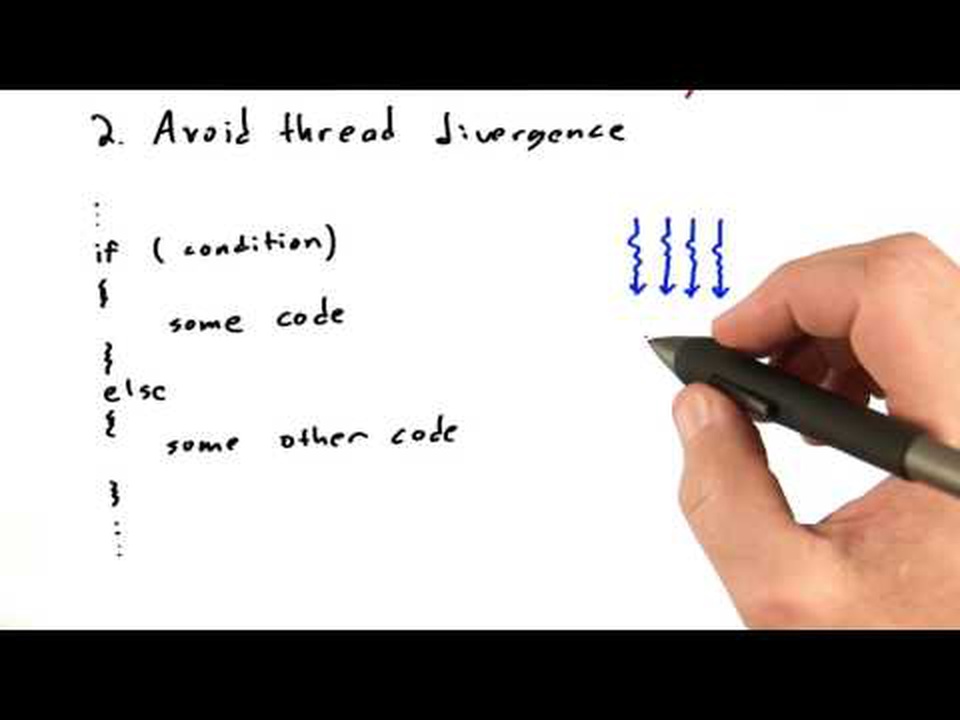 2. Avoid thread divergence
⋮
if (condition)
{
some code
}
else
{
some other code
}
⋮